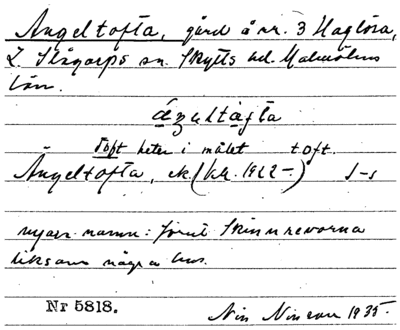 Ängeltofta, gård å nr. 3 Haglösa,
L. Slågarps sn. Skytts hd. Malmöhus
län.
toft heter i målet toft.
Ängeltofta, ek. (kr. 1922-) J-s
nyare namn: förut Skinnrevorna
liksom några hus.
Nr 5818.
Nin Ninson 1935.